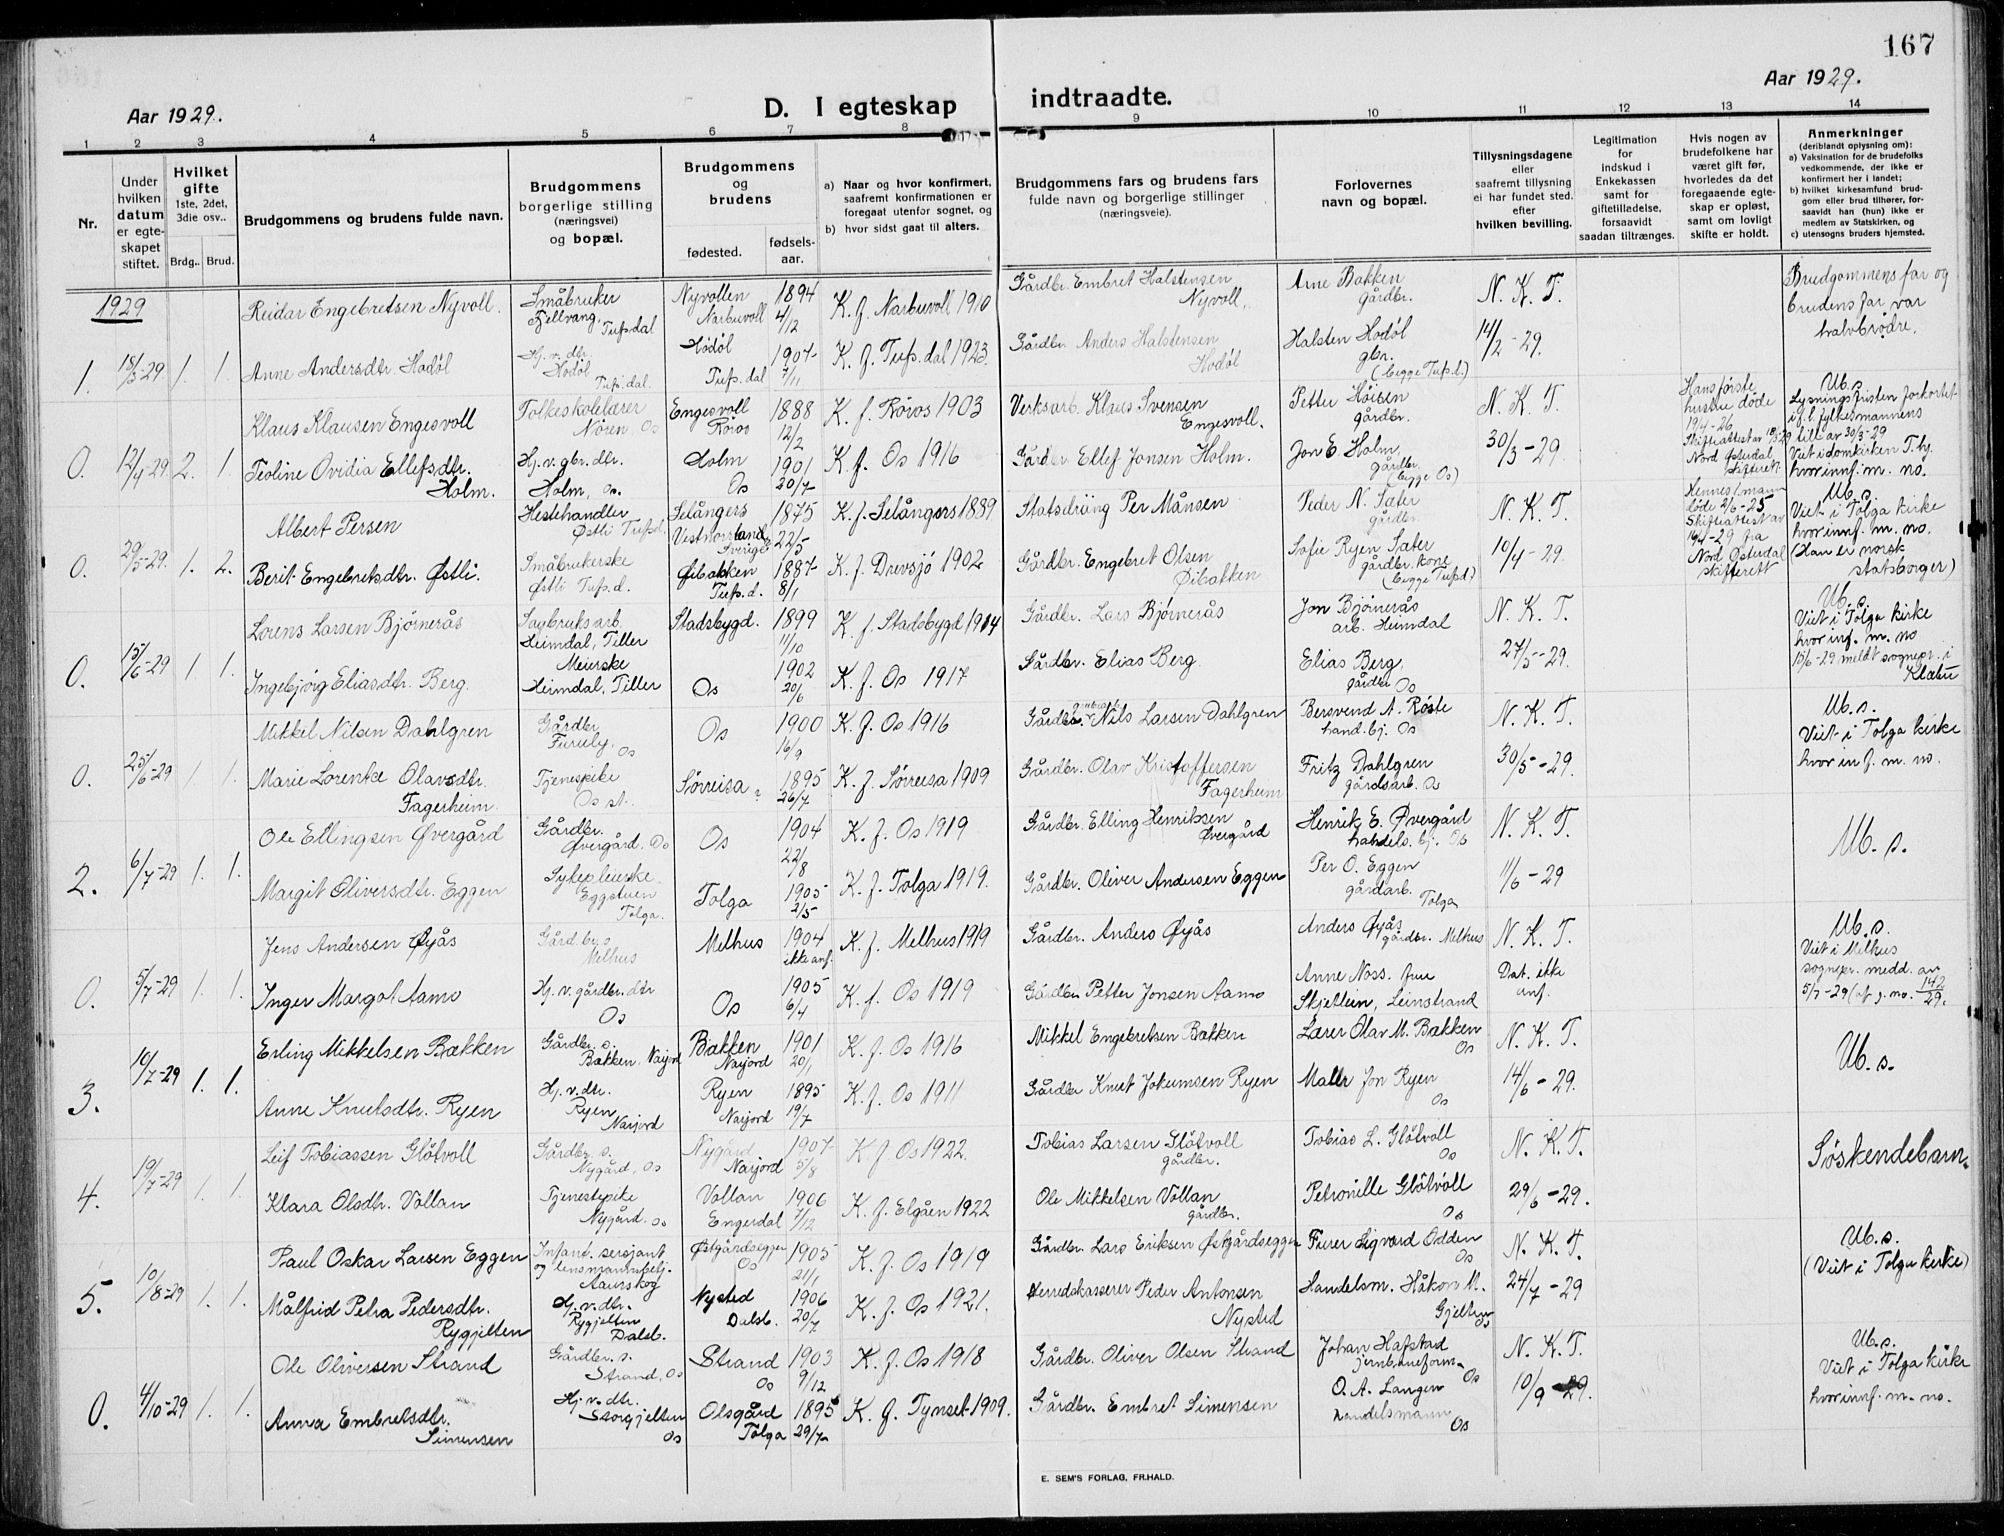 167
Aar 1929.
D. I egteskap
indtraadte.
Aar 1929.
1 2 3 4 5 6 7 8 9 10 11 12 13 14
Nr.
Under
hvilken
datum
er egte-
skapet
stiftet.
Hvilket
gifte
1ste, 2det,
3die osv..
Brdg.. Brud.
Brudgommens og brudens fulde navn.
Brudgommens
borgerlige stilling
(næringsvei)
og bopæl.
Brudgommens
og
brudens
fødested.
fødsels-
aar.
a) Naar og hvor konfirmert,
saafremt konfirmationen er
foregaat utenfor sognet, og
b) hvor sidst gaat til alters.
Brudgommens fars og brudens fars
fulde navn og borgerlige stillinger
(næringsveie).
Forlovernes
navn og bopæl.
Tillysningsdagene
eller
saafremt tillysning
ei har fundet sted.
efter
hvilken bevilling.
Legitimation
for
indskud i
Enkekassen
samt for
giftetilledelse,
forsaavidt
saadan tiltrænges.
Hvis nogen av
brudefolkene har
været gift før,
hvorledes da det
foregaaende egte-
skap er opløst,
samt om lovligt
skifte er holdt.
Anmerkninger
(deriblandt oplysning om):
a) Vaksination for de brudefolks
vedkommende, der ikke er
konfirmert her i landet;
b) hvilket kirkesamfund brud-
gom eller brud tilhører, for-
saavidt han (hun) ikke er
medlem av Statskirken, og
c) utensogns bruders hjemsted.
1929
Reidar Engebretsen Nyvoll.
Småbruker
Fjellvang,
Tufs.dal
Nyvollen
Narbuvoll
1894
4/12
K. f. Narbuvoll 1910
Gårdbr. Embret Halstensen
Nyvoll.
Arne Bakken
gårdbr.
N. K. T.
Brudgommens far og
brudens far var
halvbrødre.
1. 18/3-29 1. 1.
Anne Andersdtr. Hodøl
Hj. v. dtr.
Hodøl
Tufs.dal.
Hodøl
Tufs.dal
1907
7/11
K. f. Tufs.dal 1923.
Gårdbr. Anders Halstensen
Hodøl
Halsten Hodøl
gbr.
(begge Tufs.d.)
14/2-29.
Klaus Klausen Engesvoll
Folkeskolelærer
Nören, Os
Engesvoll
Röros
1888
12/2
K. f. Røros 1903
Verksarb. Klaus Svensen
Engesvoll.
Petter Höisen
gårdbr.
N. K. T.
Hans første
hustru døde
19/4-26
Skifteattest av 18/3-29
Nord Østerdal
skifterett
Ub. s.
Lysningsfristen forkortet
i fl. fylkesmannens
till av 30/3-29
Viet i domkirken T.hj.
hvor innf. m. no.
0. 12/4-29 2. 1.
Teoline Ovidia Ellefsdtr.
Holm.
Hj. v. gbr. dtr.
Holm, Os.
Holm
Os
1901
20/7
K. f. Os 1916
Gårdbr. Ellef Jonsen Holm.
Jon E. Holm,
gårdbr.
(begge Os)
30/3-29.
Albert Persen
Hestehandler
Østli Tufsd.
Selångers
Vestnorrland
Sverige
1875
22/5
K. f. Selångers 1889
Statsdräng Per Månsen
Peder N. Sæter
gårdbr.
N. K. T.
Hennes f. mann
døde 2/6-25
Skifteattest av
16/4-29 fra
Nord Østerdal
skifterett
Ub. s.
Viet i Tolga kirke
hvor innf. m. no.
(Han er norsk
statsborger)
0. 29/5-29. 1. 2.
Berit Engebretsdtr. Østli.
Småbrukerske
Østli Tufs.d.
Øibakken
Tufs.d.
1887
8/1
K. f. Drevsjö 1902
Gårdbr. Engebret Olsen
Øibakken
Sofie Ryen Sæter
gårdbr. kone
(begge Tufsd.)
10/4-29.
Lorens Larsen Bjørnerås
Sagbruksarb.
Heimdal, Tiller
Stadsbygd.
1899
11/10
K. f. Stadsbygd 1914
Gårdbr. Lars Bjørnerås
Jon Bjørnerås
arb. Heimdal
N. K. T.
Ub. s.
Viet i Tolga kirke
hvor inf. m. no
15/6-29. meldt sognepr. i
Klæbu
0. 15/6-29 1. 1.
Ingebjörg Eliasdtr. Berg.
Meierske
Heimdal, Tiller
Os
1902
20/6
K. f. Os 1917
Gårdbr. Elias Berg.
Elias Berg,
gårdbr Os
27/5-29.
Mikkel Nilsen Dahlgren
Gårdbr.
Furuly.
Os
Os
1900
16/9
K. f. Os 1916
Gårdbr. Nils Larsen Dahlgren
Bersvend A. Røste
hand. bj. Os
N. K. T.
Ub. s.
Viet i Tolga kirke
hvor inf. m. no.
0. 25/6-29 1. 1.
Marie Lorentse Olavsdtr.
Fagerheim.
Tjenestpike
Os st.
Sörreisa
1895
26/7
K. f. Sörreisa 1909
Gårdbr. Olav Kristoffersen
Fagerheim
Fritz Dahlgren
gårdsarb. Os
30/5-29.
Ole Ellingsen Øvergård
Gårdbr.
Øvergård. Os
Os
1904
22/8
K. f. Os 1919
Gårdbr. Elling Henriksen
Øvergård
Henrik E. Øvergård
handels. bj. Os
N. K. T.
Ub. s.
2. 6/7-29 1. 1.
Margit Oliversdtr. Eggen
Sykepleierske
Eggstuen
Tolga.
Tolga
1905
2/5
K. f. Tolga 1919.
Gårdbr. Oliver Andersen Eggen
Per O. Eggen
gårdarb.
Tolga
11/6-29
Jens Andersen Øyås
Gård.br.s
Melhus
Melhus
1904
ikke anf.
K. f. Melhus 1919
Gårdbr. Anders Øyås
Anders Øyås
gårdbr. Melhus
N. K. T.
Ub. s.
Viet i Melhus
sognepr. medd. av
5/7-29 (cf. j. no. 142/29.
0. 5/7-29 1. 1.
Inger Margot Aamo
Hj. v. gårdbr. dtr
Os
Os
1905
6/4
K. f. Os 1919
Gårdbr Petter Jonsen Aamo
Anne Noss. frue
Skjetlein, Leinstrand
Dat. ikke
anf.
Erling Mikkelsen Bakken
Gårdbr. s.
Bakken. Narjord
Bakken
Narjord
1901
20/1
K. f. Os 1916
Mikkel Engebretsen Bakken
Lærer Olav M. Bakken
Os
N. K. T.
Ub. s.
3. 10/7-29 1. 1.
Anne Knutsdtr. Ryen
Hj. v. dtr.
Ryen,
Narjord
Ryen
Narjord
1895
19/7
K. f. Os 1911
Gårdbr Knut Jokumsen Ryen
Maler Jon Ryen
Os
14/6-29.
Leif Tobiassen Gløtvoll
Gårdbr. s.
Nygård, Os
Nygård
Narjord
1907
5/8
K. f. Os 1922.
Tobias Larsen Gløtvoll
gårdbr.
Tobias L. Gløtvoll
Os
N. K. T.
Söskendebarn.
4. 19/7-29 1. 1.
Klara Olsdtr. Vollan
Tjenestepike
Nygård. Os
Vollan
Engerdal
1906
7/12
K. f. Elgåen 1922
Ole Mikkelsen Vollan
gårdbr.
Petronille Gløtvoll
Os
29/6-29.
Paul Oskar Larsen Eggen
Infant. sersjant
og lensmannsbetj.
Aaurskog
Østgårdseggen
Os
1905
21/1
K. f. Os 1919
Gårdbr. Lars Eriksen Østgårdseggen
Furer Sigvard Odden
Os
N. K. T.
Ub. s.
(Viet i Tolga kirke)
5. 10/8-29 1. 1.
Målfrid Petra Pedersdtr.
Rygjelten
Hj. v. dtr.
Rygjelten
Dalsb.
Nysted
Dalsb.
1906
20/7
K. f. Os 1921.
Herredskasserer Peder Antonsen
Nysted
Handelsm. Håkon M.
Gjelten
Os
24/7-29
Ole Oliversen Strand
Gårdbr. s.
Strand, Os
Strand
Os
1903
9/12
K. f. Os 1918
Gårdbr. Oliver Olsen Strand
Johan Hafstad
jernbaneform.
Os
N. K. T.
Ub. s.
Viet i Tolga kirke
hvor innf. m. no.
0. 4/10-29 1. 1.
Anna Embretsdtr.
Simensen
Hj. v. dtr.
Storgjelten
Os
Olsgård
Tolga
1895
29/7
K. f. Tynset 1909.
Gårdbr. Embret Simensen
O. A. Langen
handelsmann
Os
10/9-29.
E. SEM'S FORLAG, FR.HALD.